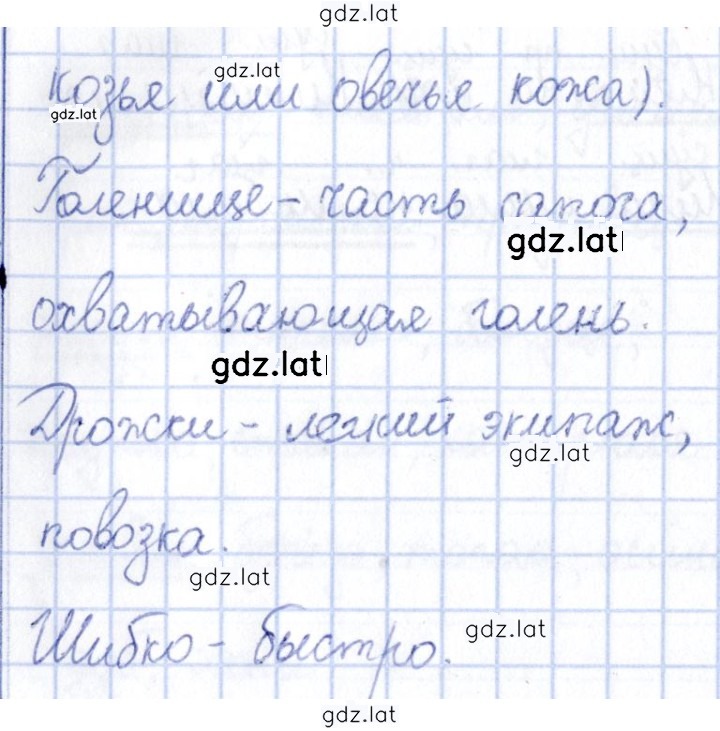 gdz.lat
gdz.lat
козья или овечья кожа).
gdz.lat
Голенище - часть сапога,
gdz.lat
охватывающая голень.
gdz.lat
Дрожки - легкий экипаж,
gdz.lat
повозка.
gdz.lat
Шибко - быстро.
gdz.lat
gdz.lat